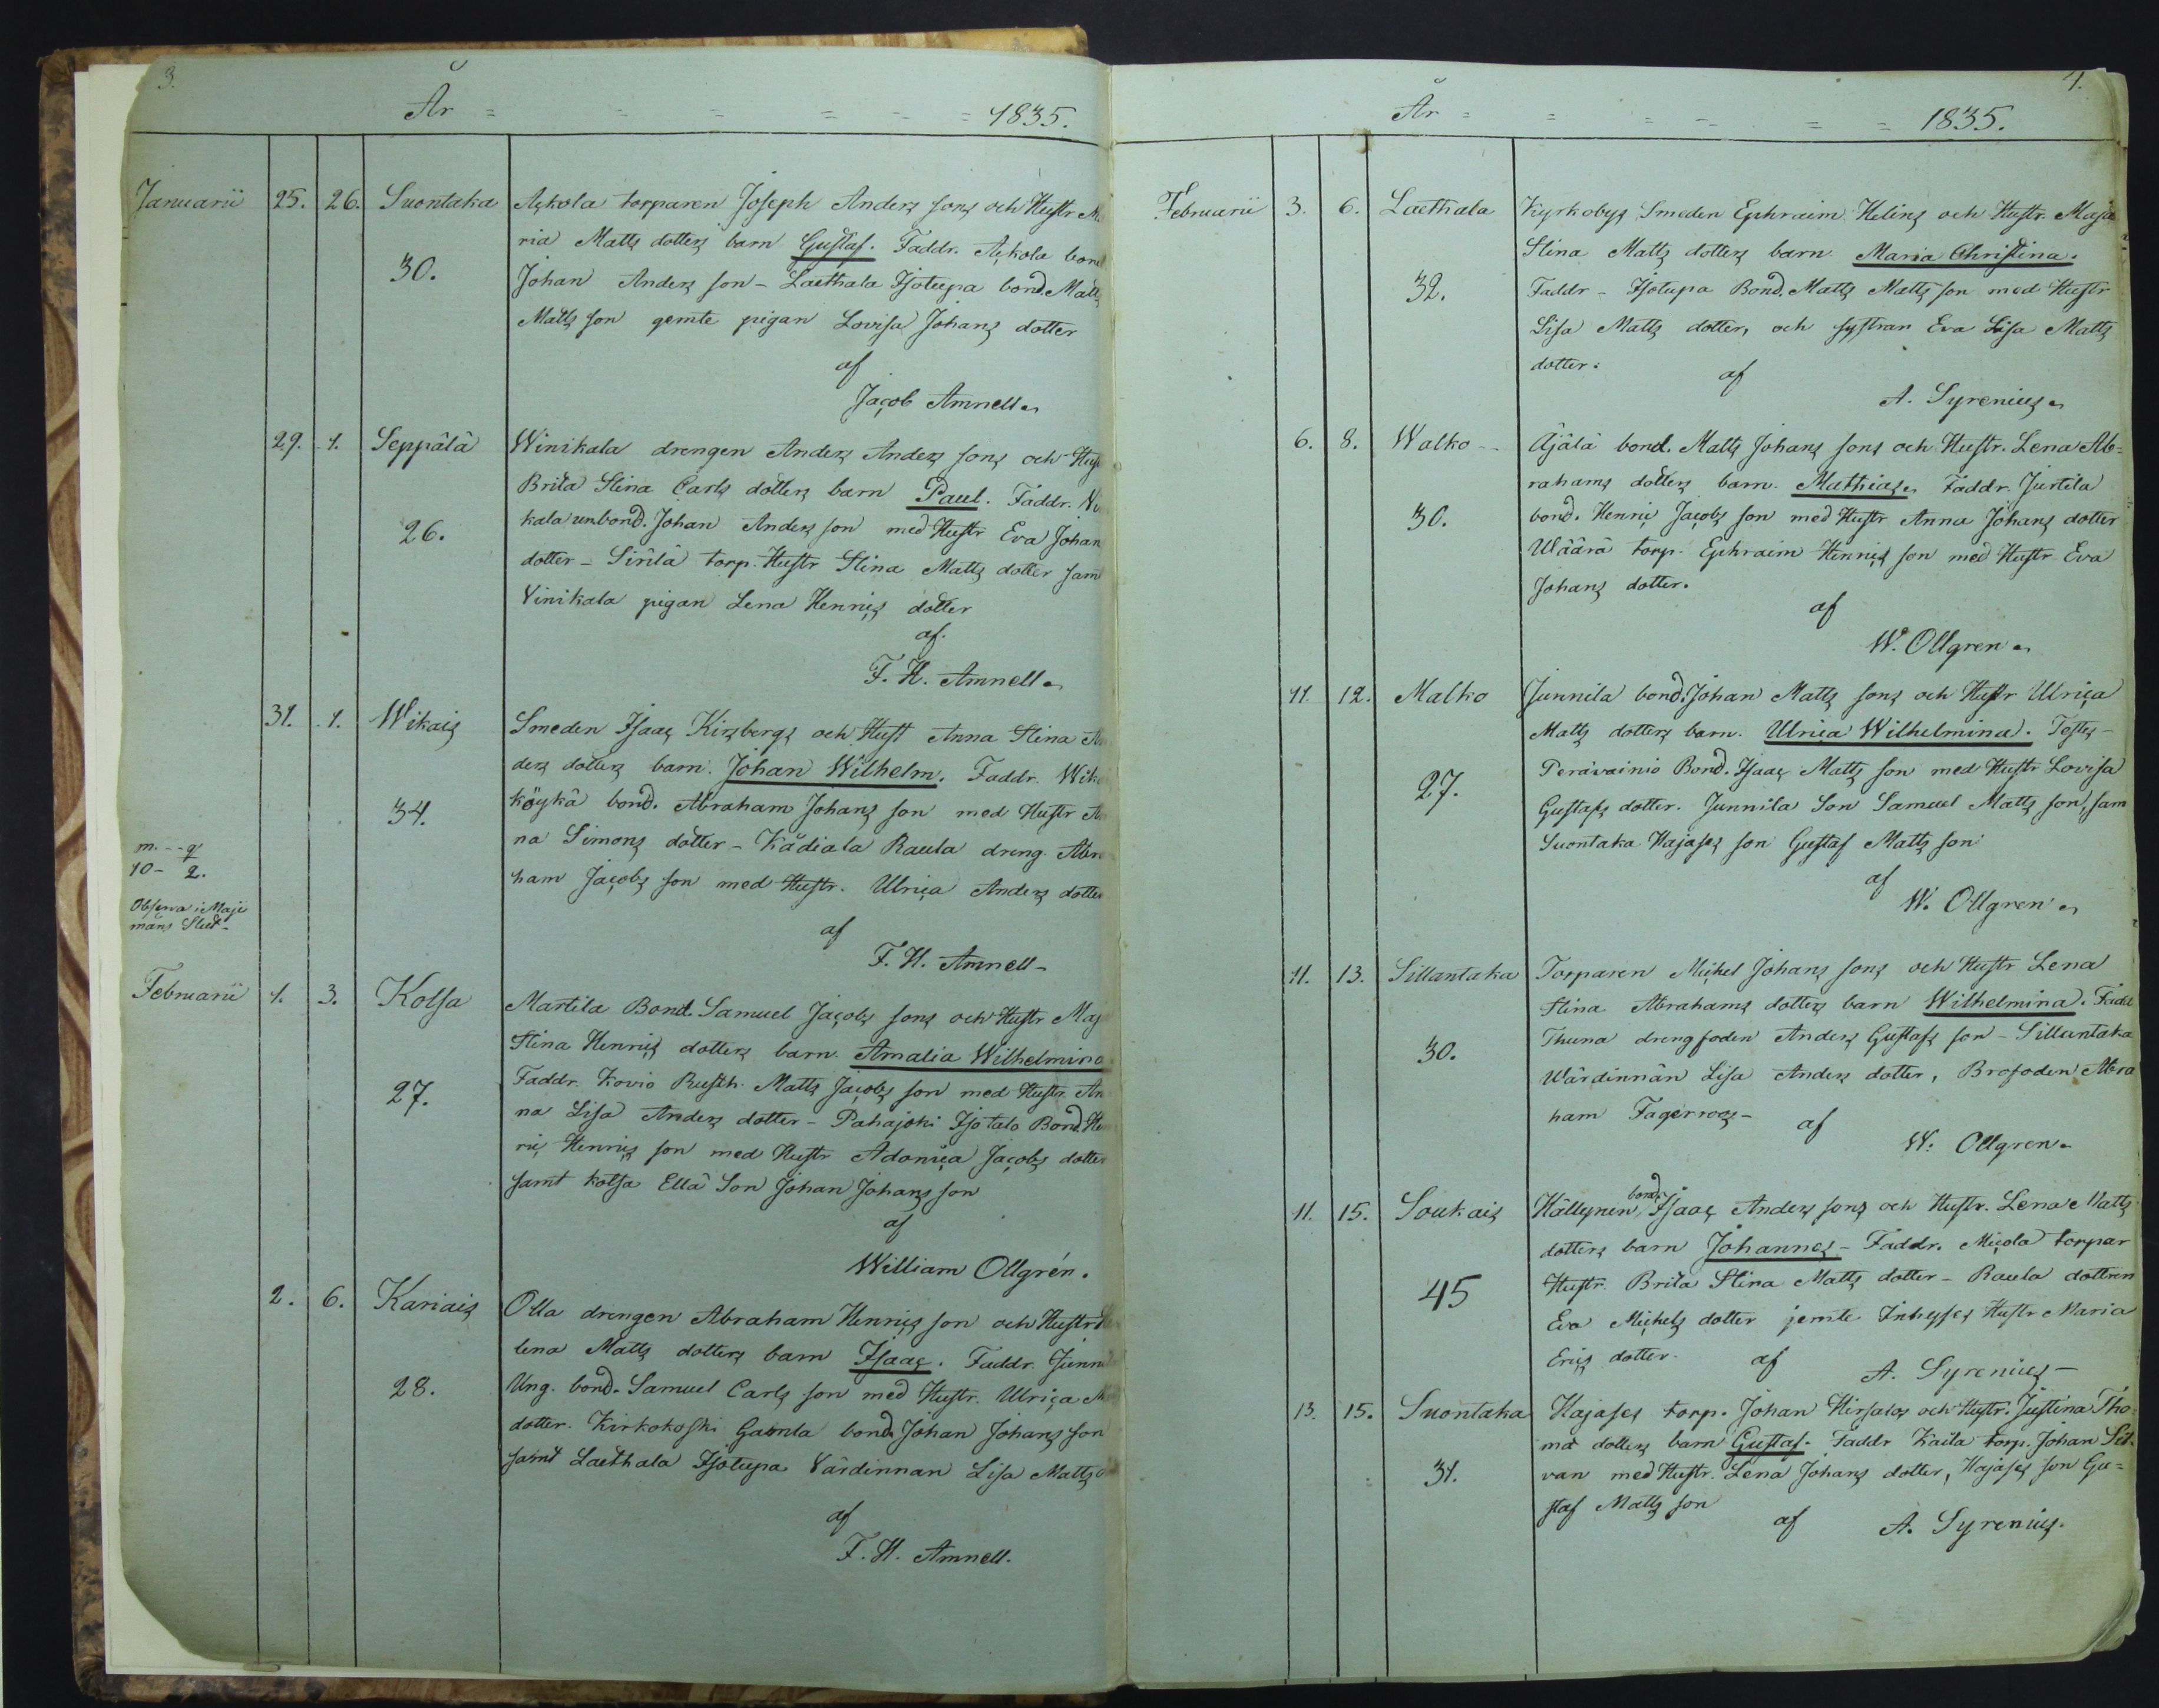 3.
År = = = = = = 1835.
Januarii 25. 26. Suontaka Ackola torparen Joseph Anders sons och Hustr Ma
ria Matts dotters barn Gustaf. Faddr. Ackola bond
30. Johan Anders son - Laethala Isotupa bond. Matts
Matts son gemte pigan Lovisa Johans dotter
af
Jacob Amnell.
29. 1. Seppälä Winikala drengen Anders Anders sons och Hust
Brita Stina Carls dotters barn Paul. Faddr. Vi
26. kala unbond. Johan Anders son med Hustr Eva Johan
dotter - Sirilä torp. Hustr Stina Matts dotter sam
Vinikala pigan Lena Henrics dotter
af.
F. H. Amnell.
31. 1. Wikais Smeden Isaac Kirsbergs och Hust Anna Stina An
ders dotters barn. Johan Wilhelm. Faddr. Wika
34. köykä bond. Abraham Johans son med Hustr An
na Simons dotter - Kädiala Raula dreng. Abra
ham Jacobs son med Hustr. Ulrica Anders dotter
m. -- q.
10 - 2.
af
F. H. Amnell -
Februarii 1. 3. Kolsa Martila Bond. Samuel Jacobs sons och Hustr Maj
Stina Henrics dotters barn. Amalia Wilhelmina
27. Faddr. Kovio Rusth. Matts Jacobs son med Hustr. An
na Lisa Anders dotter - Pahajoki Iso talo Bond. Hen
ric Henrics son med Hustr Adamica Jacobs dotter
samt Kolsa Ellä Son Johan Johans son
af
William Ollgrén.
2. 6. Kariais Olla drengen Abraham Henrics son och Hustr
lena Matts dotters barn Isaac. Faddr. Junni
28. Ung. bond. Samuel Carls son med Hustr. Ulrica
dotter. Kirkokoski Gamla bond. Johan Johans son
samt Laethala Isotupa Värdinnan Lisa Matts
af
F. H. Amnell.
4.
År = = = = = = 1835.
Februarii 3. 6. Laethala Kyrkobys Smeden Ephraim Helins och Hustr. Maja
Stina Matts dotters barn. Maria Christina.
32. Faddr - Isotupa Bond. Matts Matts son med Hustr
Lisa Matts dotter, och systran Eva Lisa Matts
dotter. af
A. Syrenius.
6. 8. Walko - Äjälä bond. Matts Johans sons och Hustr. Lena Ab=
rahams dotters barn. Mathias. Faddr. Jurtila
30. bond. Henric Jacobs son med Hustr Anna Johans dotter
Wäärä torp. Ephraim Henrics son med Hustr Eva
Johans dotter.
af
W. Ollgren.
11. 12. Malko Junnila bond. Johan Matts sons och Hustr Ulrica
Matts dotters barn. Ulrica Wilhelmina. Testes -
27. Perävainio Bond. Isaac Matts son med Hustr Lovisa
Gustafs dotter. Junnila Son Samuel Matts son, sam
Suontaka Hajases son Gustaf Matts son
af
W. Ollgren.
11. 13. Sillantaka Torparen Michel Johans sons och Hustr Lena
Stina Abrahams dotters barn Wilhelmina. Fadd
30. Thuna drengsoden Anders Gustafs son - Sillantaka
Wärdinnän Lisa Anders dotter, Brofoden Abra
ham Fagerroos - af
W. Ollgren.
11. 15. Soukais Hällynen bond. Isaac Anders sons och Hustr. Lena Matts
dotters barn Johannes - Faddr. Micola torpar
45 Hustr. Brita Stina Matts dotter - Raula dottren
Eva Michels dotter jemte Inhyses Hustr Maria
Erics dotter. af
A. Syrenius -
13. 15. Suontaka Hajases torp. Johan Hirsalos och Hustr. Justina Tho
ma dotters barn Gustaf. Faddr Kaila torp. Johan Sil
31. van med Hustr. Lena Johans dotter, Hajases son Gu=
staf Matts son af
A. Syrenius.